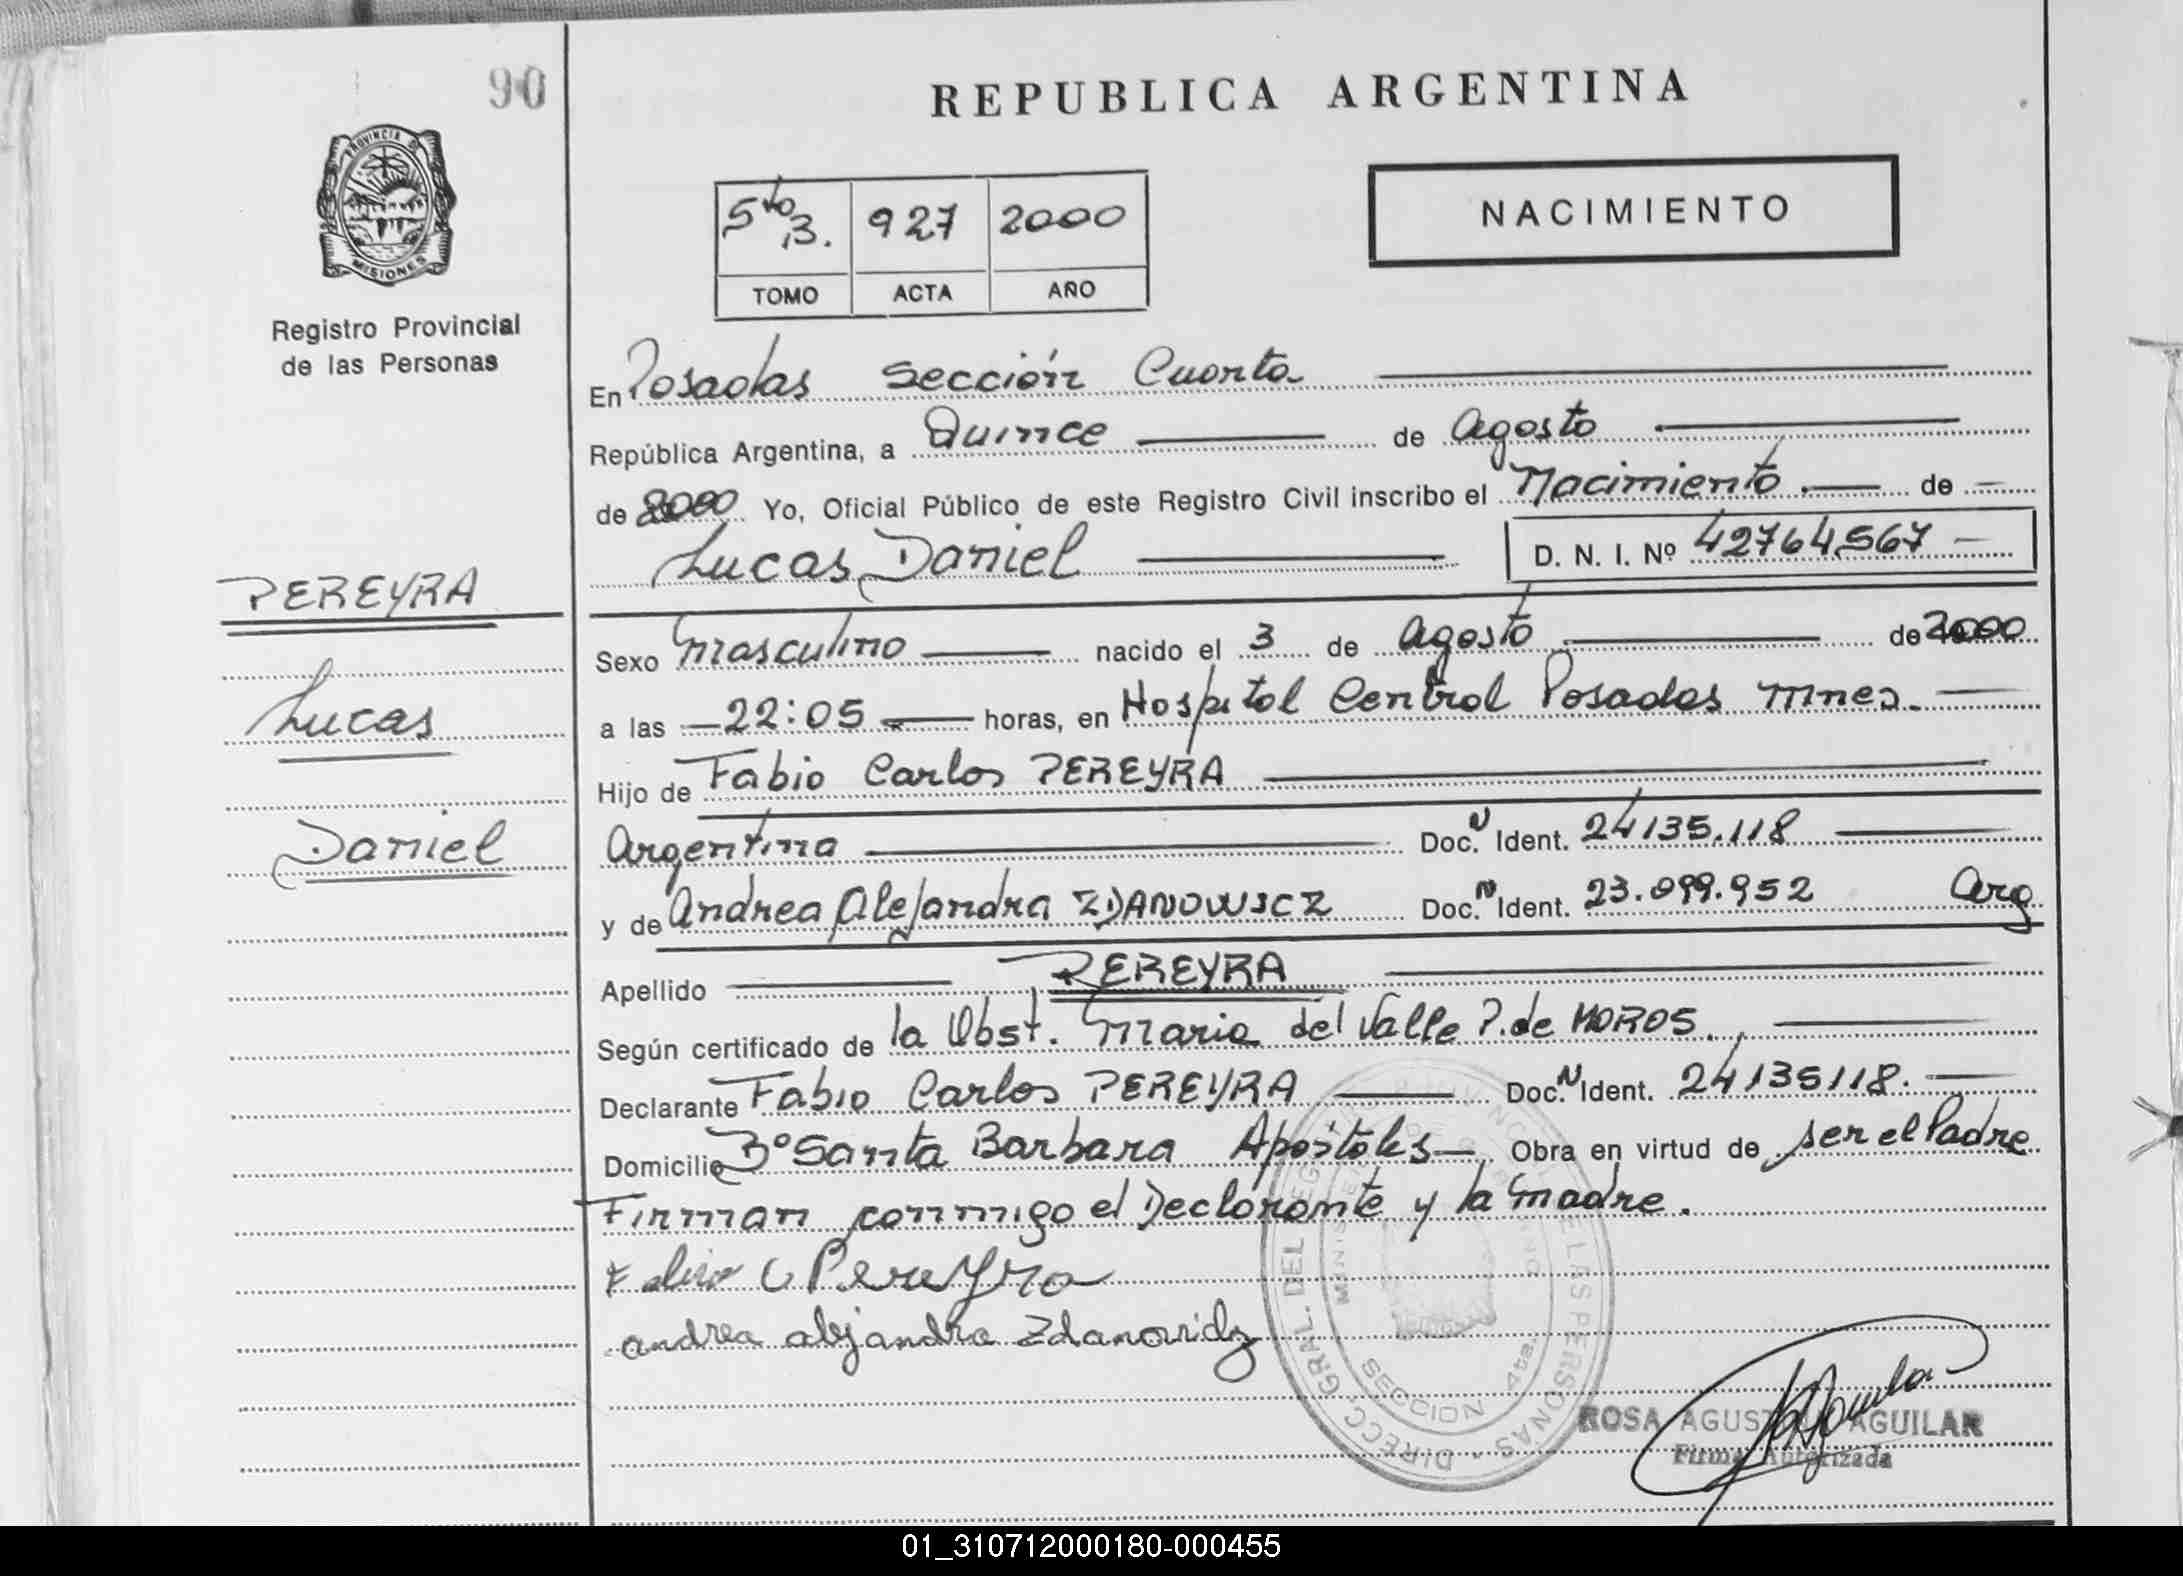 90
REPUBLICA ARGENTINA
PROVINCIA DE
MISIONES
Registro Provincial
de las Personas
5to B. 927 2000
TOMO ACTA AÑO
NACIMIENTO
En Posadas Sección Cuarta
República Argentina, a Quince de Agosto
de 2000 Yo, Oficial Público de este Registro Civil inscribo el Nacimiento de
Lucas Daniel D. N. I. Nº 42764567
PEREYRA
Lucas
Daniel
Sexo Masculino nacido el 3 de Agosto de 2000
a las 22:05 horas, en Hospital Central Posadas Mnes.
Hijo de Fabio Carlos PEREYRA
Argentina Doc. N Ident. 24135.118
y de Andrea Alejandra ZDANOWICZ Doc. N Ident. 23.099.952 Arg
Apellido PEREYRA
Según certificado de la Obst. Maria del Valle P. de MOROS.
Declarante Fabio Carlos PEREYRA Doc. N Ident. 24135118.
Domicilio Bº Santa Barbara Apóstoles Obra en virtud de ser el Padre
Firman conmigo el Declarante y la Madre.
Fabio C Pereyra
andrea alejandra Zdanovidz
DIRECC. GRAL. DEL REG. PROVINCIAL DE LAS PERSONAS
SECCION 4ta.
ROSA AGUILAR
Firma Autorizada
01_310712000180-000455